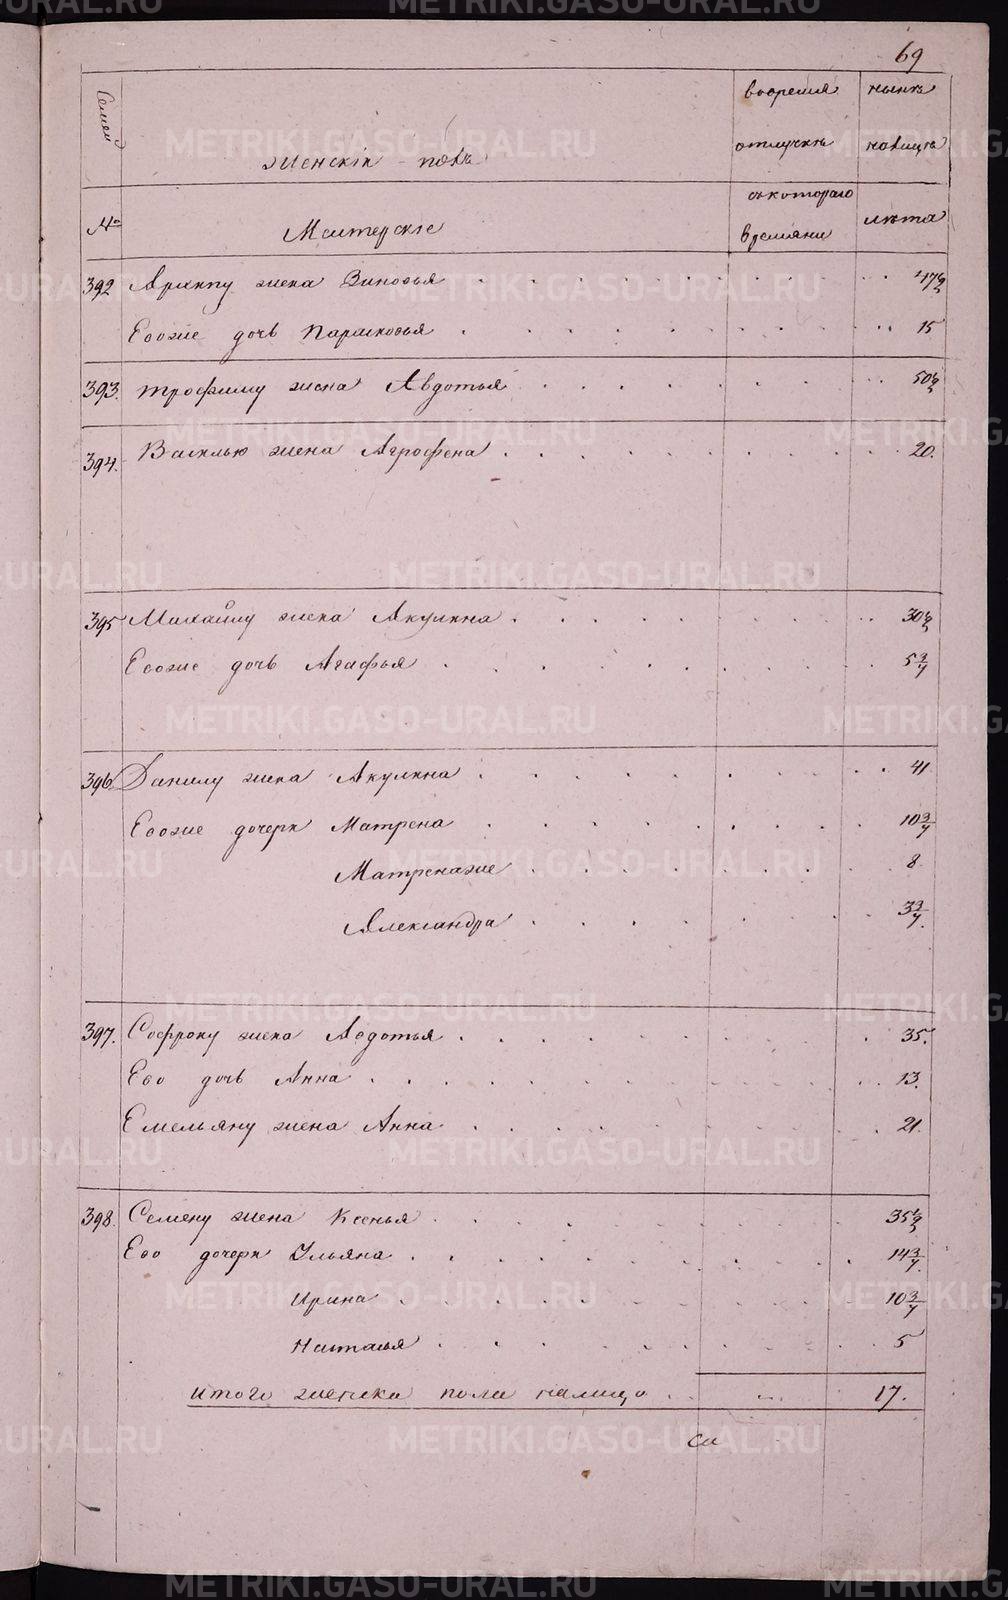 69
Семей
женскiй полъ
вовремя
отлучкѣ
нынѣ
налицѣ
№
Мастерскiе
скотораго
времяни
лѣта
392 Архипу жена Зиновья 47½
Евоже дочь Парасковья 15
393. Трофиму жена Авдотья 50½
394. Василью жена Агрофена 20.
395 Михайлу жена Акулина 30½
Евоже дочь Агафья 5 3/4
396 Данилу жена Акулина 41
Евоже дочери Матрена 10 3/4
Матренаже 8
Александра 3 3/4
397. Софрону жена Авдотья 35.
Ево дочь Анна 13.
Емельяну жена Анна 21.
398. Семену жена Ксенья 35½
Ево дочери Ульяна 14 3/4
Ирина 10 3/4
Настасья 5
итого женска пола налицо 17.
METRIKI.GASO-URAL.RU